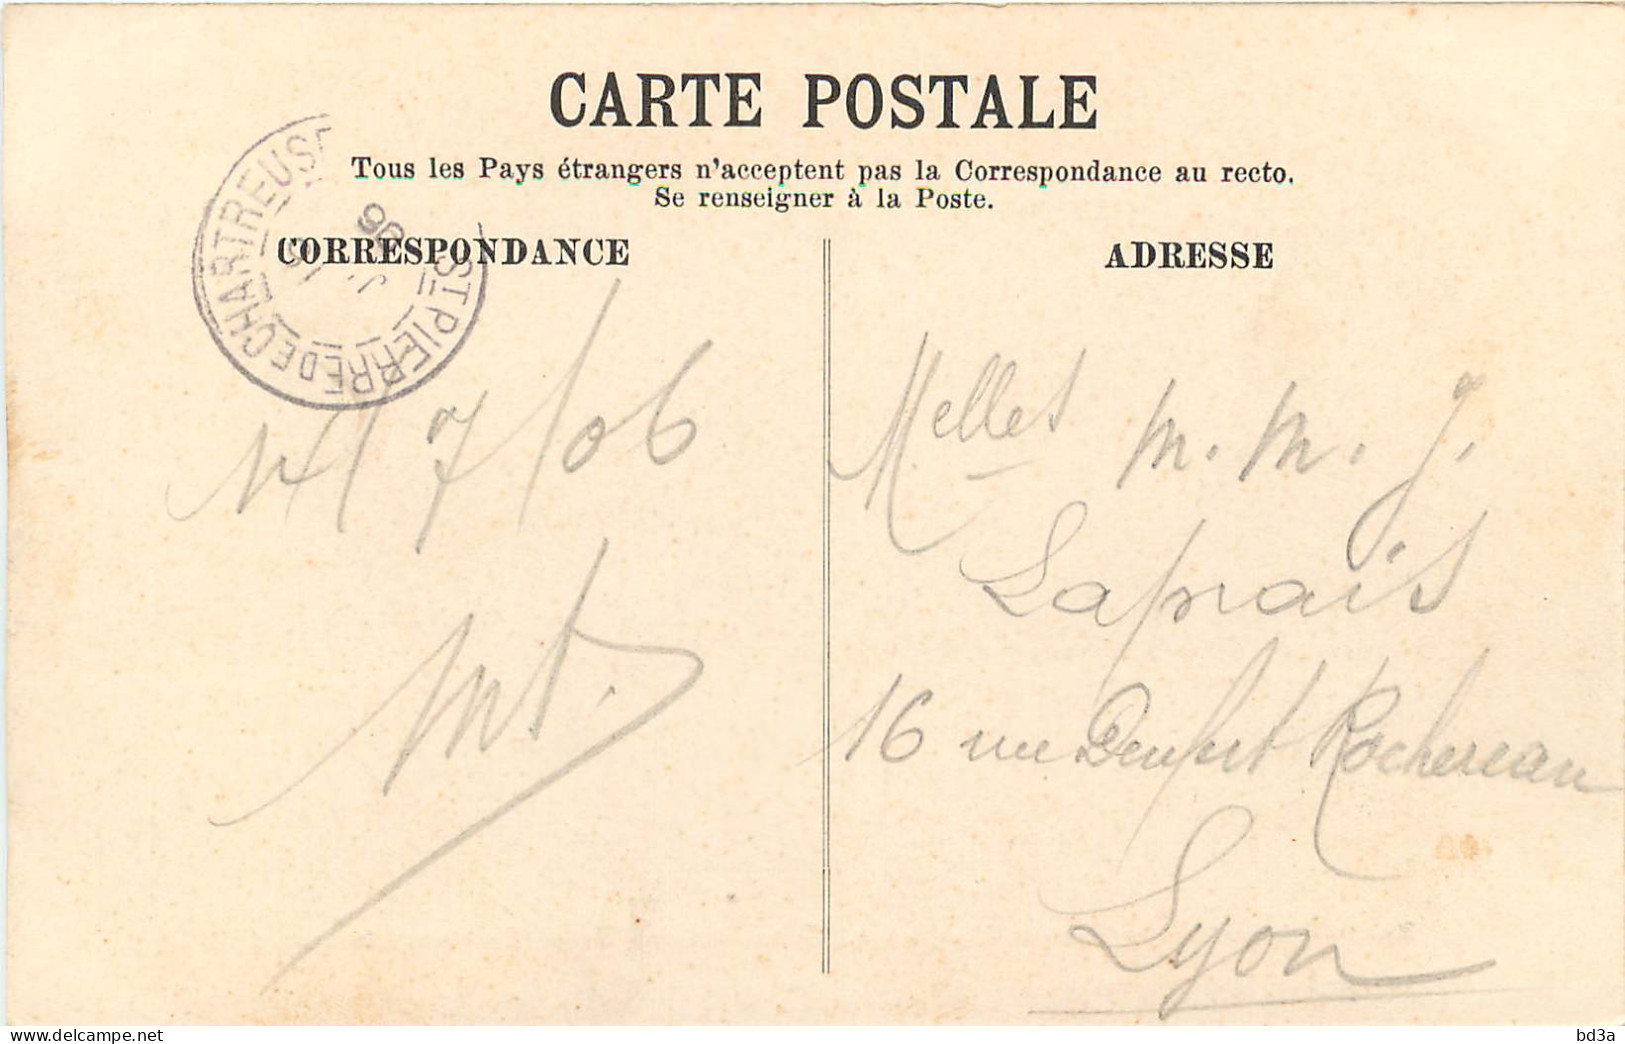 CARTE POSTALE
Tous les Pays étrangers n'acceptent pas la Correspondance au recto.
Se renseigner à la Poste.
CORRESPONDANCE
ADRESSE
ST PIERRE DE CHARTREUSE
06
14/7/06
Melles M. M. J.
Laprais
16 rue Denfert Rochereau
Lyon
www.delcampe.net
bd3a